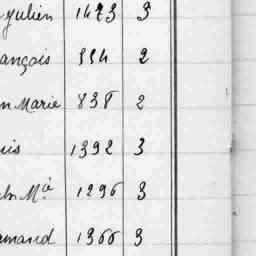 Julien 1473 3
ançois 334 2
n Marie 838 2
uis 1392 3
Mie 1296 3
mand 1366 3